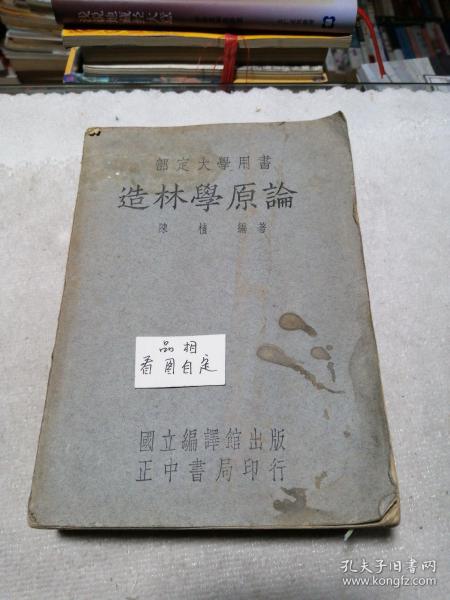 部定大學用書
造林學原論
陳植編著
品相
看图自定
國立編譯館出版
正中書局印行
孔夫子旧书网
www.kongfz.com